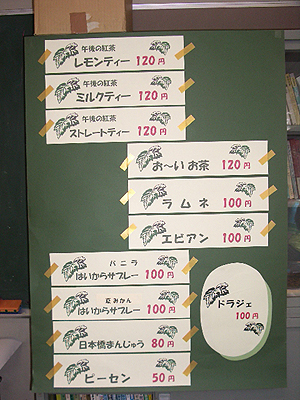 午後の紅茶
レモンティー 120円
午後の紅茶
ミルクティー 120円
午後の紅茶
ストレートティー 120円
お〜いお茶 120円
ラムネ 100円
エビアン 100円
バニラ
はいからサブレー 100円
夏みかん
はいからサブレー 100円
日本橋まんじゅう 80円
ピーセン 50円
ドラジェ
100円